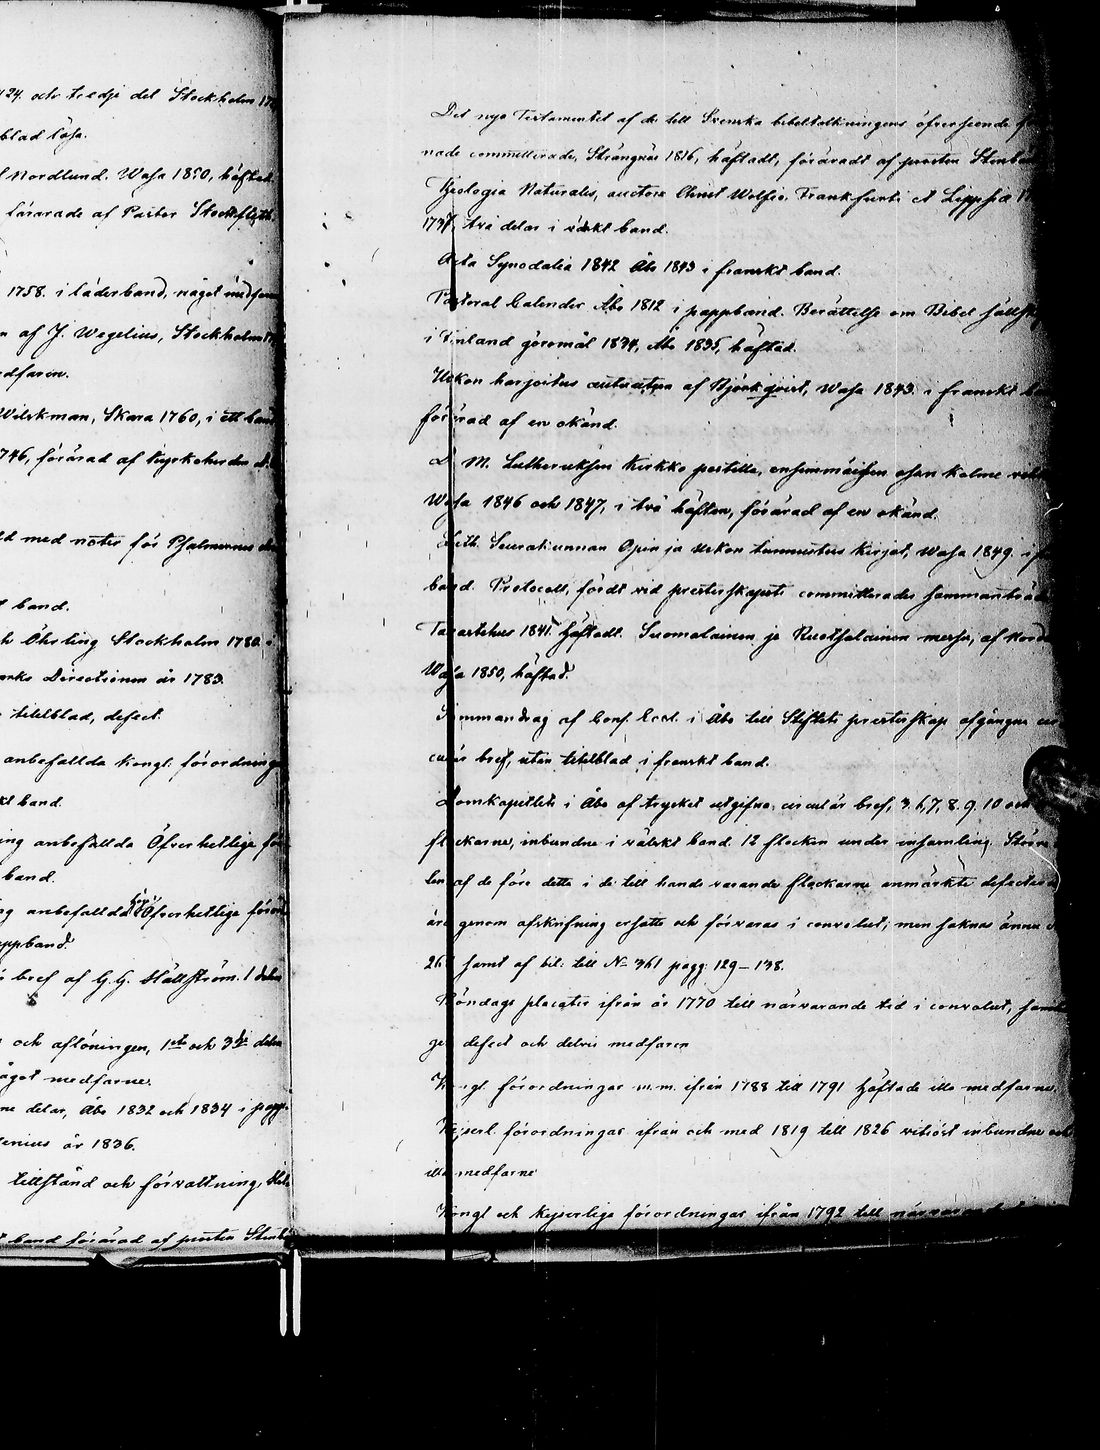 24. och tredje del Stockholm 17
blad lösa.
Nordlund. Wasa 1850, häftad
förärade af Pastor
1758. i läderband, något medfaren
af J. Wegelius, Stockholm 17
medfaren.
Wilskman, Skara 1760, i ett band
746, förärad af Kyrkoherden
med noter för Psalmernes
band.
Öhrling Stockholm 1780. i
Directionen år 1783.
titelblad, defect.
anbefallda Kongl. förordningar
band.
anbefallda Öfverhetlige för
band.
anbefallda Öfverhetlige förord
pappband.
bref af G. G. Hällström. 1 delen
och aflöningen, 1sta och 3dje delen
något medfarne.
delar, Åbo 1832 och 1834 i papp
år 1836.
tillstånd och förvaltning,
band förärad af prosten Stenb
Det nya Testamentet af de till Svenska bibeltolkningens öfverseende
nade committerade, Strängnäs 1816, häftadt, förärad af prosten Stenbäck
Theologia Naturalis, auctore Christ Wolfio. Frankfurti et Lippsiæ
1737, två delar i välskt band.
Acta Synodalia 1842 Åbo 1843 i franskt band.
Pastoral Calender Åbo 1812 i pappband. Berättelse om Bibel sällsk
i Finland göromål 1834, Åbo 1835, häftad.
Uskon harjoitus af Björkqvist, Wasa 1843. i franskt band
förärad af en okänd.
D. M. Lutheruksen Kirkko postilla, ensimmäisen osan kolme
Wasa 1846 och 1847, i två häften, förärad af en okänd.
Luth. Seurakunnan Opin ja Uskon tunnustus kirjat, Wasa 1849. i
band. Protocoll, fördt vid presterskapets committerades sammanträde
Tavastehus 1841. häftadt. Suomalainen ja Ruotsalainen messu, af Nord
Wasa 1850, häftad.
Sammandrag af Conf. Eccl. i Åbo till Stiftets presterskap afgångne
culär bref, utan titelblad i franskt band.
Domkapitlets i Åbo af trycket utgifne, circulär bref, 3. 6, 7, 8. 9. 10 och
flockarne, inbundne i välskt band. 12 flocken under insamling. Större
len af de före detta i de till hands varande flockarne anmärkte defecter
äro genom afskrifning ersatte och förvaras i convolut; men saknas ännu
26 samt af bil: till No 361 pagg. 129 – 138.
Böndags placater ifrån år 1770 till närvarande tid i convolut,
defect och delvis medfaren
Kongl. förordningar m.m. ifrån 1788 till 1791 häftade illa medfarne.
Kejserl. förordningar ifrån och med 1819 till 1826 inbundne och
illa medfarne
Kongl och Kejserlige förordningar ifrån 1792 till